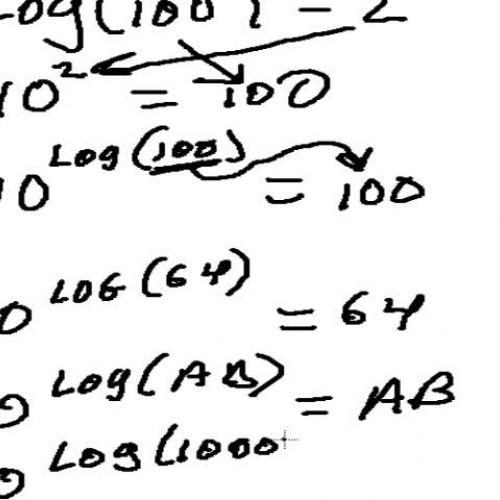 Log(100) = 2
10² = 100
10^Log(100) = 100
0^LOG(64) = 64
0^Log(AB) = AB
0^Log(1000